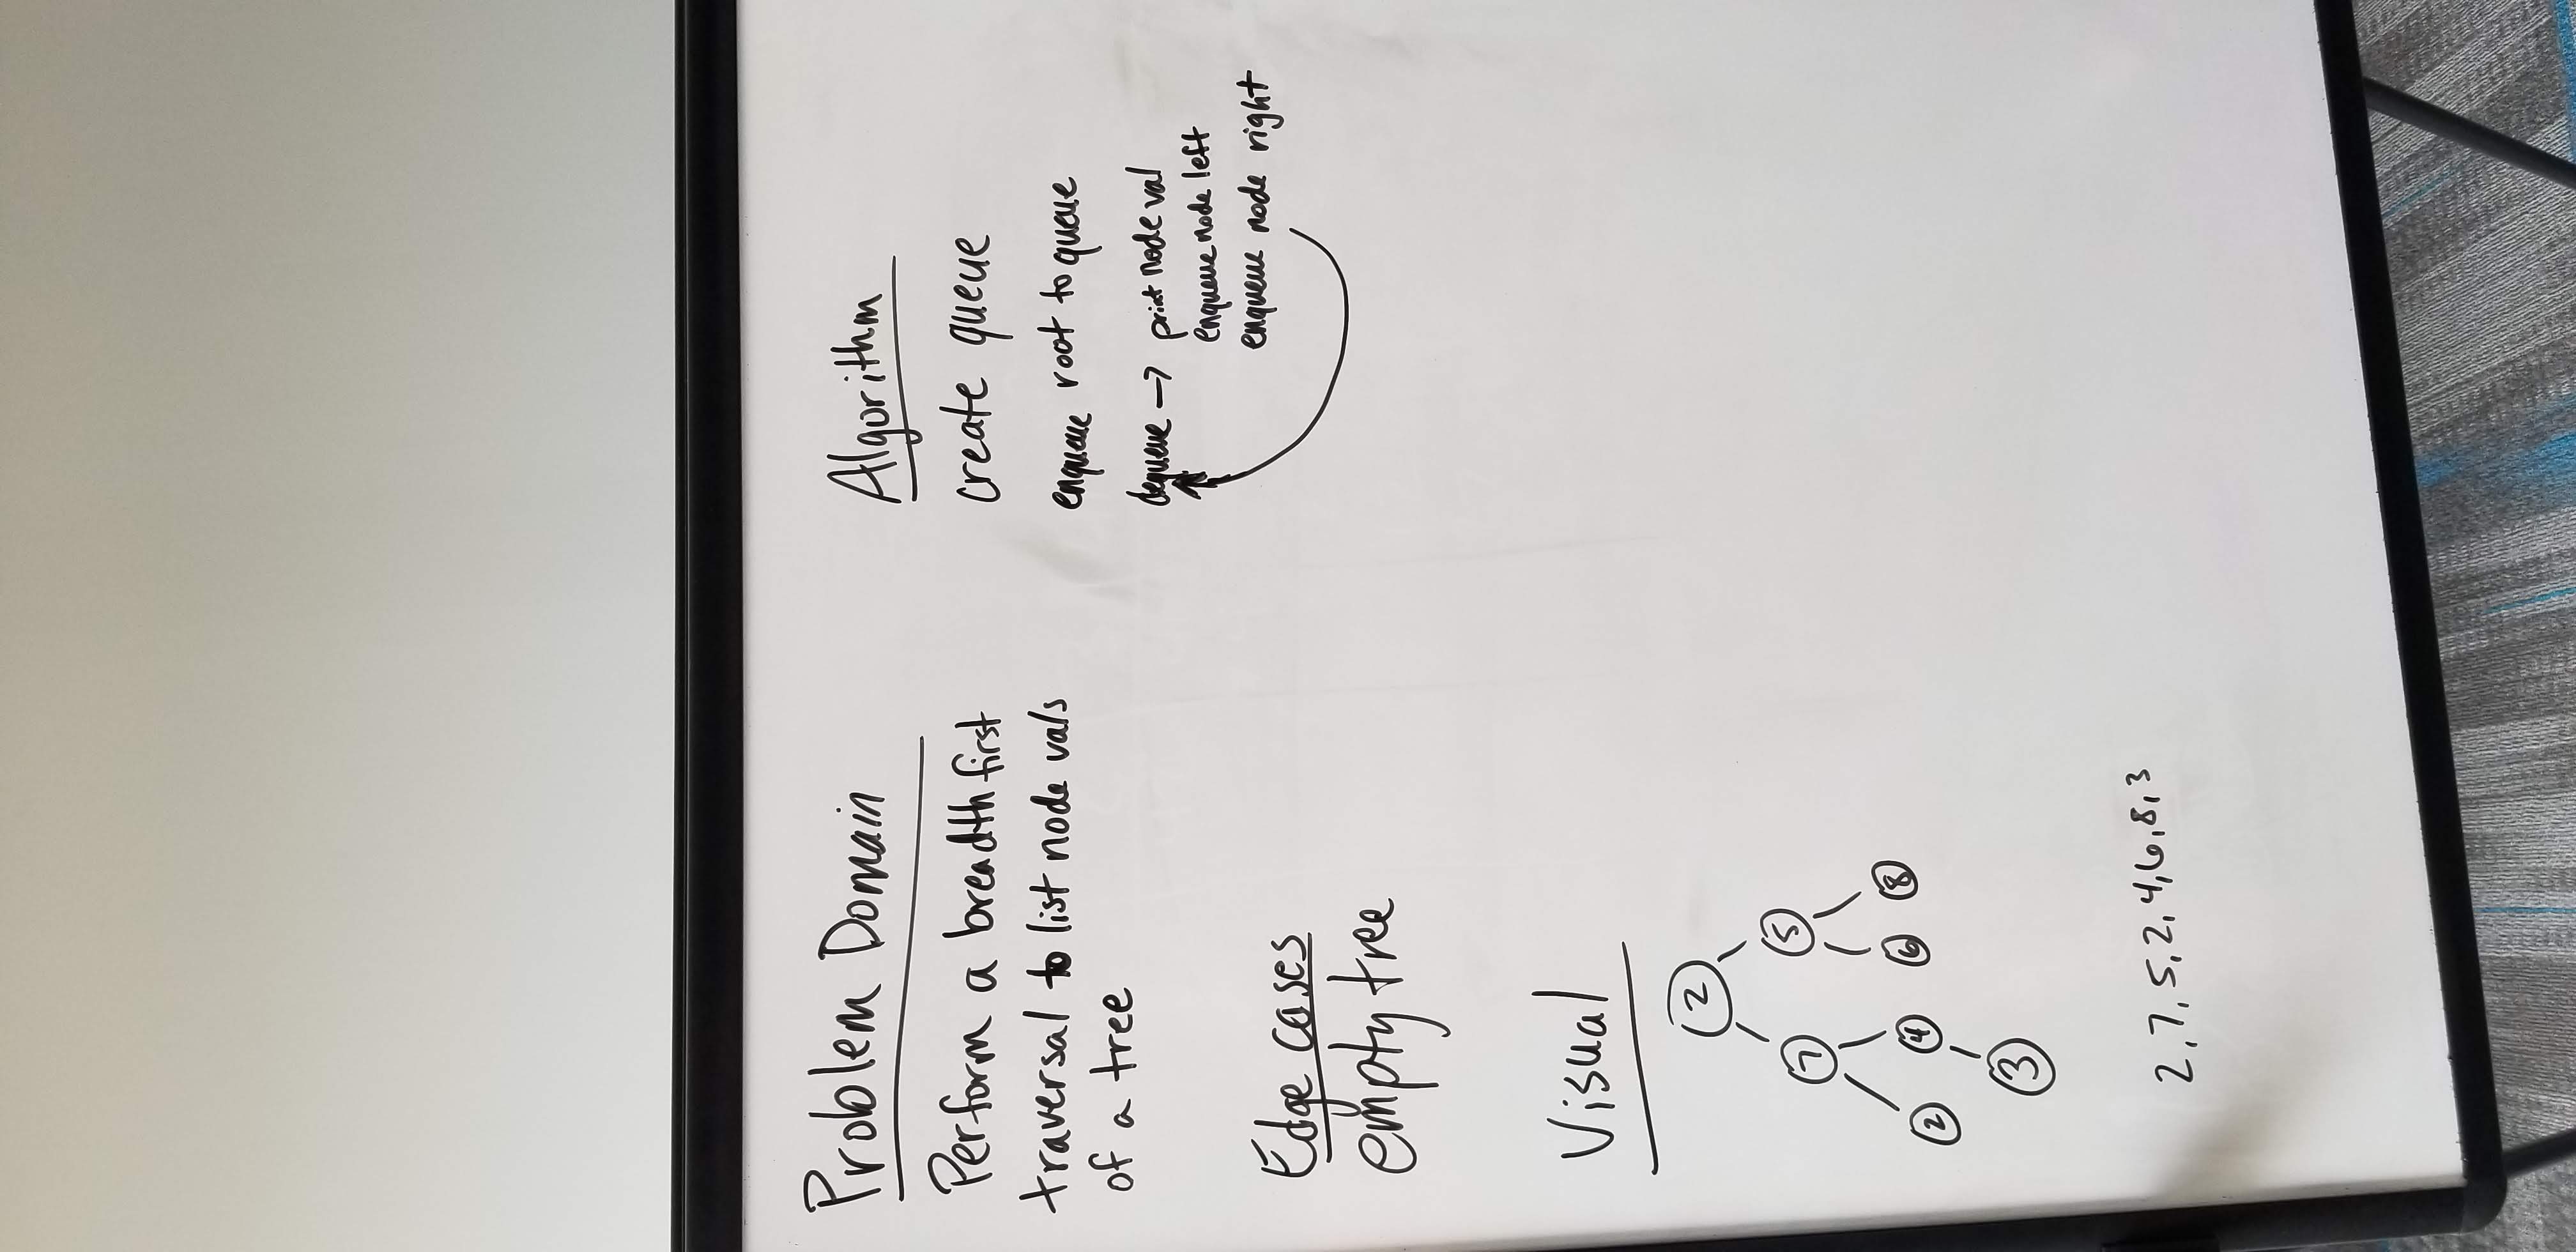 Problem Domain
Perform a breadth first
traversal to list node vals
of a tree
Edge cases
empty tree
Visual
2
7 5
2 4 6 8
3
2, 7, 5, 2, 4, 6, 8, 3
Algorithm
create queue
enqueue root to queue
dequeue → print node val
enqueue node left
enqueue node right